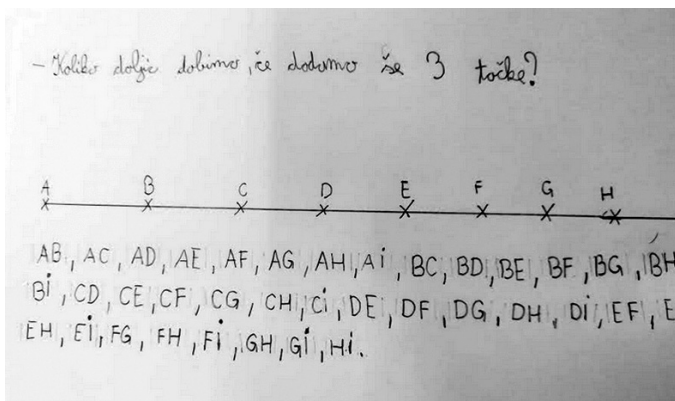 - Koliko daljic dobimo, če dodamo še 3 točke?
A B C D E F G H
AB, AC, AD, AE, AF, AG, AH, Ai, BC, BD, BE, BF, BG, BH
Bi, CD, CE, CF, CG, CH, Ci, DE, DF, DG, DH, Di, EF, E
EH, Ei, FG, FH, Fi, GH, Gi, Hi.